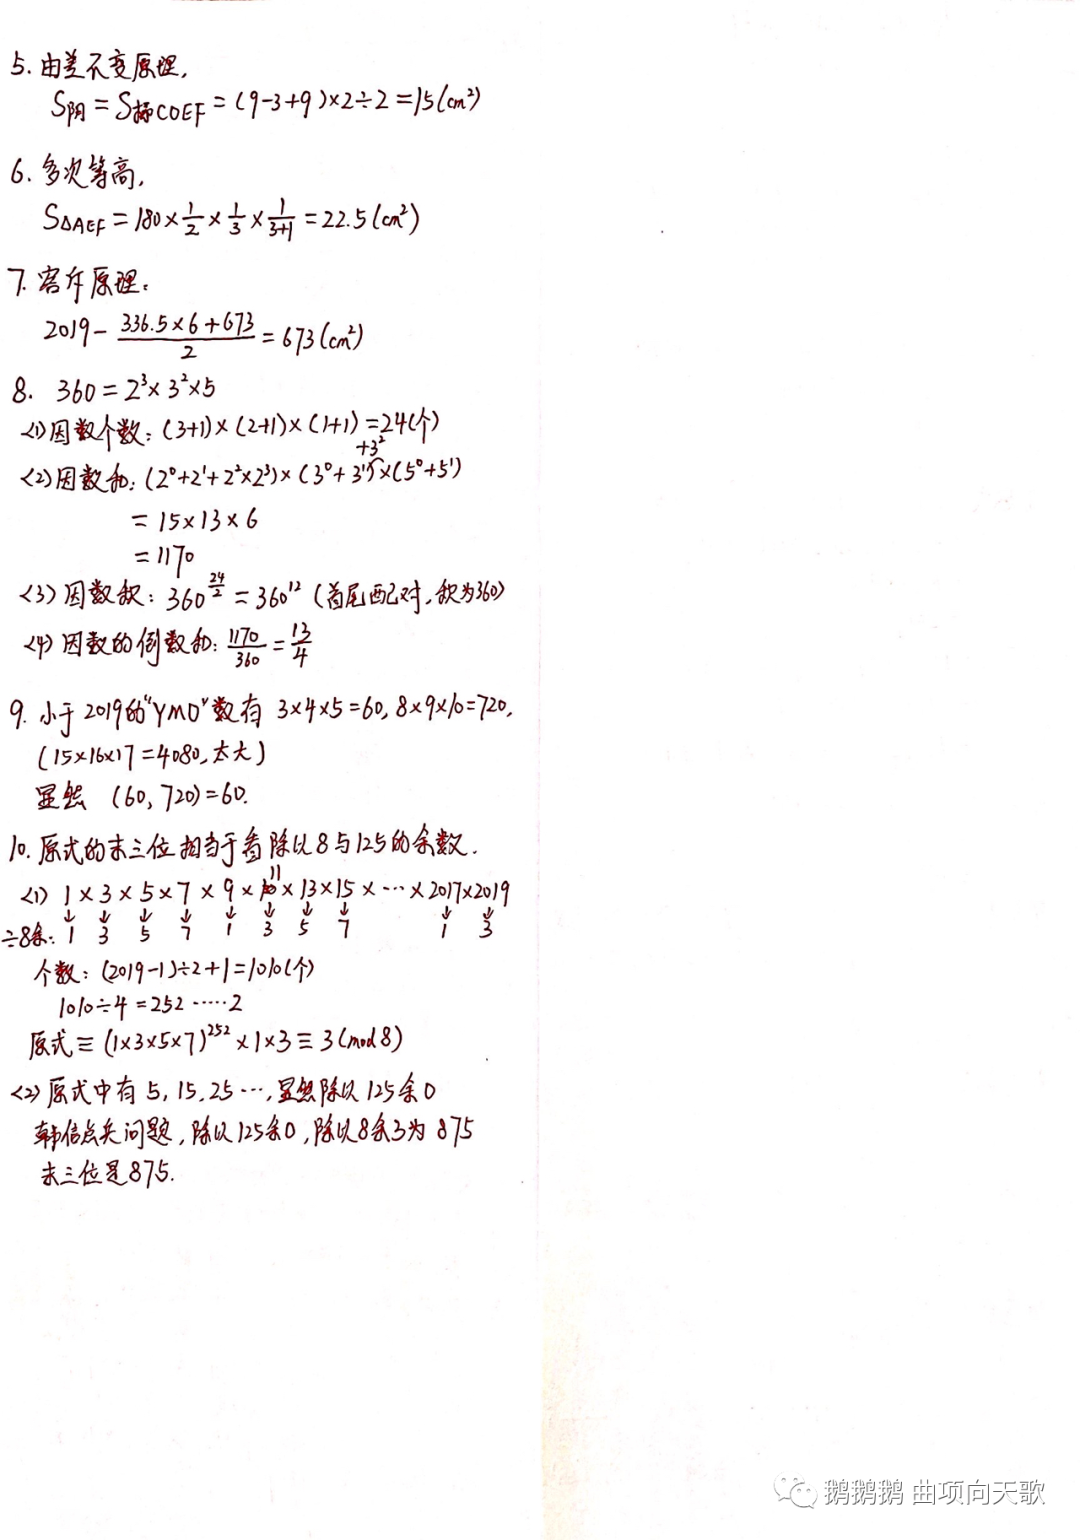 5. 由差不变原理,
S阴 = S梯COEF = (9-3+9)×2÷2 = 15(cm²)
6. 多次等高,
S△AEF = 180×1/2×1/3×1/(3+1) = 22.5(cm²)
7. 容斥原理:
2019 - (336.5×6+673)/2 = 673(cm²)
8. 360 = 2³×3²×5
<1>因数个数: (3+1)×(2+1)×(1+1) =24(个)
+3²
<2>因数和: (2⁰+2¹+2²×2³)×(3⁰+3¹)×(5⁰+5¹)
= 15×13×6
= 1170
<3>因数积: 360^(24/2) = 360¹² (首尾配对,积为360)
<4>因数的倒数和: 1170/360 = 13/4
9. 小于2019的"YMO"数有 3×4×5=60, 8×9×10=720,
(15×16×17=4080,太大)
显然 (60,720)=60.
10. 原式的末三位相当于看除以8与125的余数.
<1> 1×3×5×7×9×11×13×15×…×2017×2019
↓ ↓ ↓ ↓ ↓ ↓ ↓ ↓ ↓ ↓
÷8余: 1 3 5 7 1 3 5 7 1 3
个数: (2019-1)÷2+1=1010(个)
1010÷4=252……2
原式≡(1×3×5×7)²⁵²×1×3≡3(mod8)
<2>原式中有5,15,25…,显然除以125余0
韩信点兵问题,除以125余0,除以8余3为875
末三位是875.
鹅鹅鹅 曲项向天歌